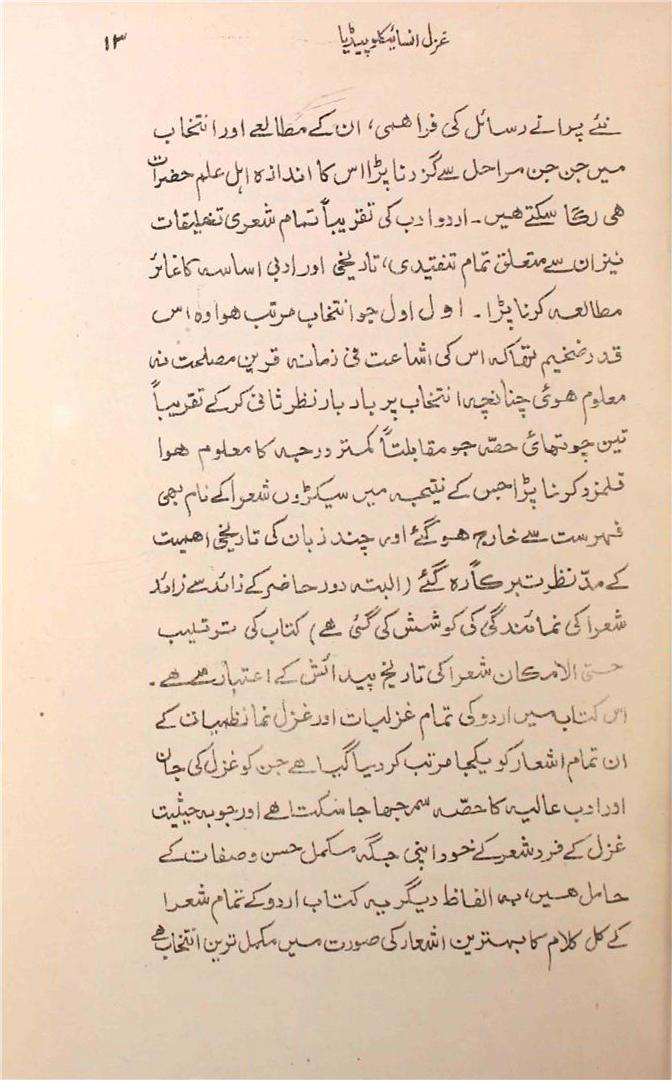 غزل انسائیکلوپیڈیا ۱۳
نئے پرانے رسائل کی فراہمی، ان کے مطالعے اور انتخاب
میں جن جن مراحل سے گزرنا پڑا اس کا اندازہ اہل علم حضرات
ہی لگا سکتے ہیں۔ اردو ادب کی تقریباً تمام شعری تخلیقات
نیز ان سے متعلق تمام تنقیدی، تاریخی اور ادبی اساسہ کا غائر
مطالعہ کرنا پڑا۔ اول اول جو انتخاب مرتب ہوا وہ اس
قدر ضخیم تھا کہ اس کی اشاعت فی زمانہ قرین مصلحت نہ
معلوم ہوئی چنانچہ انتخاب پر بار بار نظر ثانی کر کے تقریباً
تین چوتھائی حصّہ جو مقابلتاً کمتر درجہ کا معلوم ہوا
قلمزد کرنا پڑا جس کے نتیجہ میں سیکڑوں شعرا کے نام بھی
فہرست سے خارج ہو گئے اور چند زبان کی تاریخی اہمیت
کے مدّ نظر تبرکاً رہ گئے (البتہ دور حاضر کے زائد سے زائد
شعرا کی نمائندگی کی کوشش کی گئی ہے) کتاب کی ترتیب
حتی الامکان شعرا کی تاریخ پیدائش کے اعتبار سے ہے۔
اس کتاب میں اردو کی تمام غزلیات اور غزل نما نظمیات کے
ان تمام اشعار کو یکجا مرتب کر دیا گیا ہے جن کو غزل کی جان
اور ادب عالیہ کا حصّہ سمجھا جا سکتا ہے اور جو بہ حیثیت
غزل کے فرد شعر کے خود اپنی جگہ مکمل حسن و صفات کے
حامل ہیں، بہ الفاظ دیگر یہ کتاب اردو کے تمام شعرا
کے کل کلام کا بہترین اشعار کی صورت میں مکمل ترین انتخاب ہے